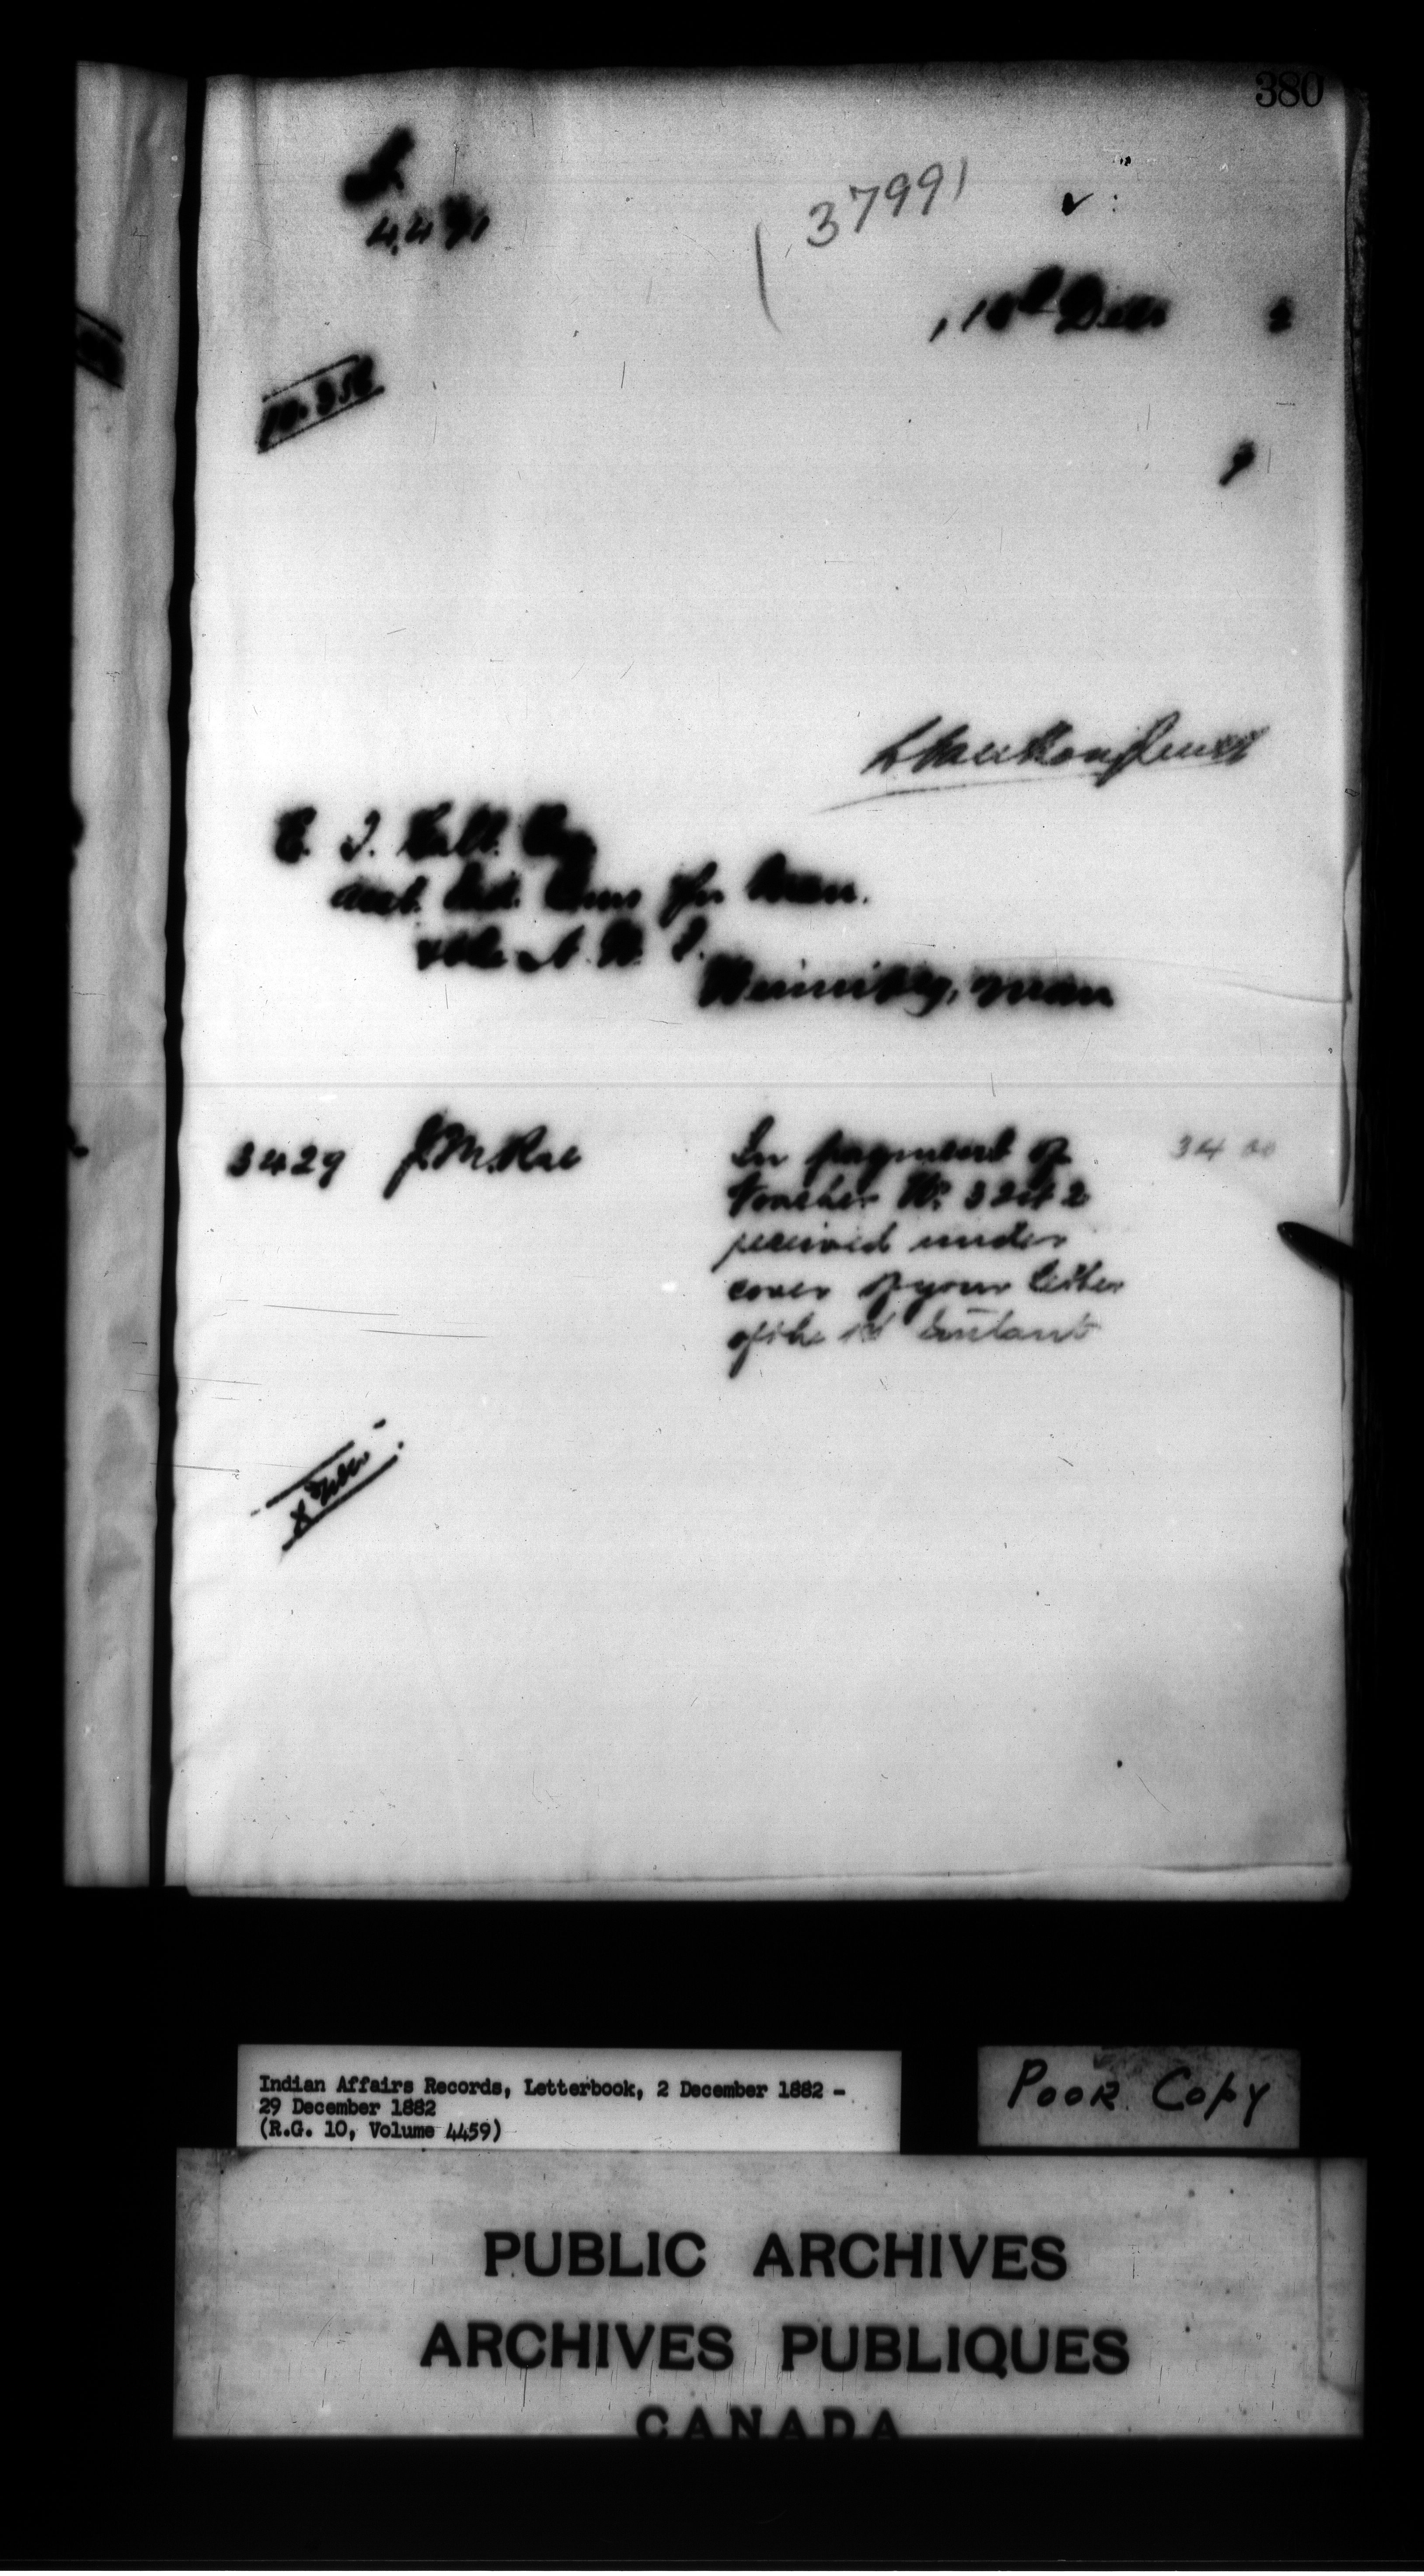 380
37991
4,491
18th Decr 2
No. 358
E. T. Galt. Esq
Asst. Ind. Comr for Man.
& the N. W. T.
Winnipeg, Man
3429 J. McRae In payment of 34 00
Voucher No 3242
received under
cover of your letter
of the 1st Instant
Indian Affairs Records, Letterbook, 2 December 1882 -
29 December 1882
(R.G. 10, Volume 4459)
POOR COPY
PUBLIC ARCHIVES
ARCHIVES PUBLIQUES
CANADA